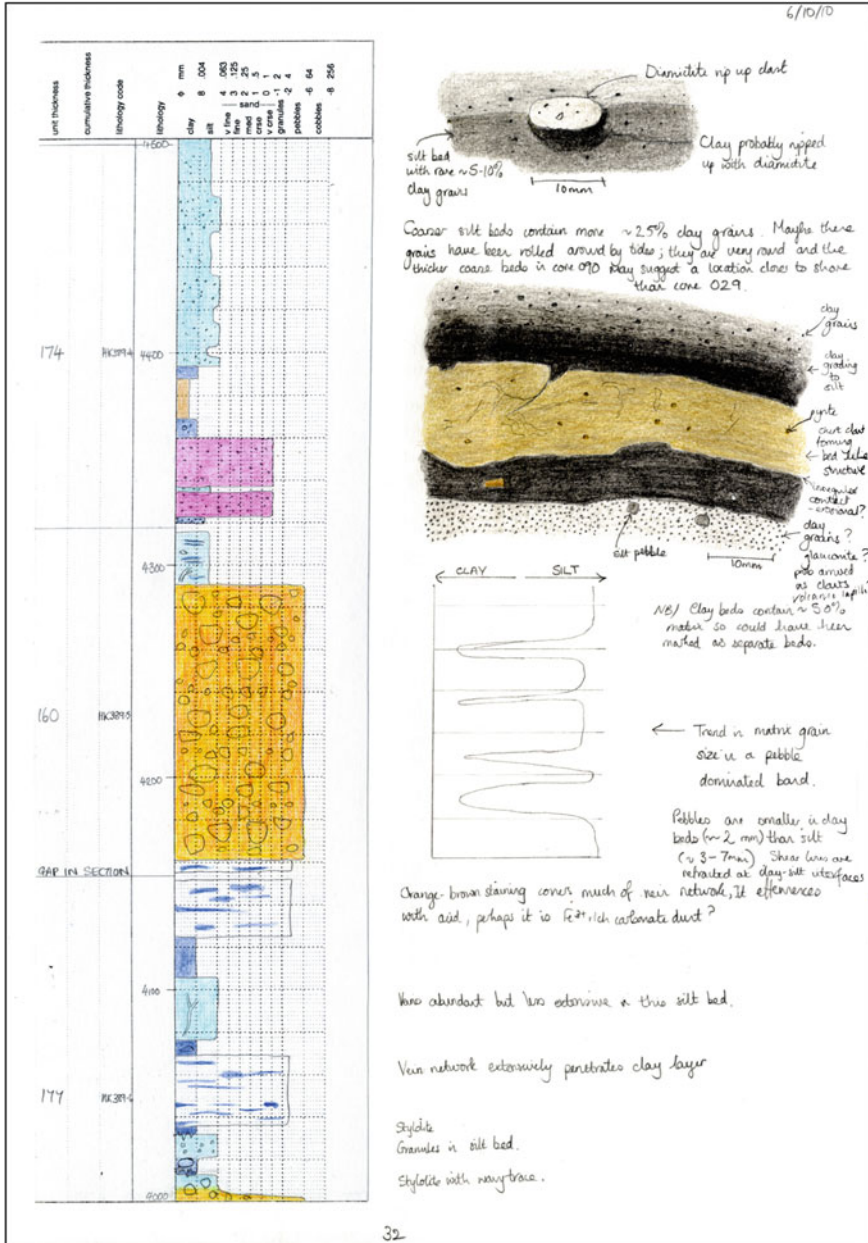 6/10/10
unit thickness
cumulative thickness
lithology code
lithology
ϕ mm
8 .004
4 .063
3 .125
2 .25
1 .5
0 1
-1 2
-2 4
-6 64
-8 256
sand
clay
silt
v fine
fine
med
crse
v crse
granules
pebbles
cobbles
4500
174
4400
4300
160
4200
GAP IN SECTION
4100
177
4000
Diamictite rip up clast
silt bed
with rare ~5-10%
clay grains
Clay probably ripped
up with diamictite
10mm
Coarser silt beds contain more ~25% clay grains. Maybe these
grains have been rolled around by tides; they are very round and the
thicker coarse beds in core 090 may suggest a location closer to shore
than core 029.
clay
grains
clay
grading
to
silt
pyrite
chert clast
forming
bed like
structure
irregular
contact
- erosional?
clay
grains?
glauconite?
prob arrived
as clasts
volcanic lapilli
silt pebble
10mm
CLAY SILT
NB/ Clay beds contain ~50%
matrix so could have been
marked as separate beds.
← Trend in matrix grain
size in a pebble
dominated band.
Pebbles are smaller in clay
beds (~2 mm) than silt
(~3-7mm) Shear lines are
refracted at clay-silt interfaces
Orange-brown staining covers much of vein network, It effervesces
with acid, perhaps it is Fe²⁺ rich carbonate dust?
Veins abundant but less extensive in this silt bed.
Vein network extensively penetrates clay layer
Stylolite
Granules in silt bed.
Stylolite with wavy trace.
32